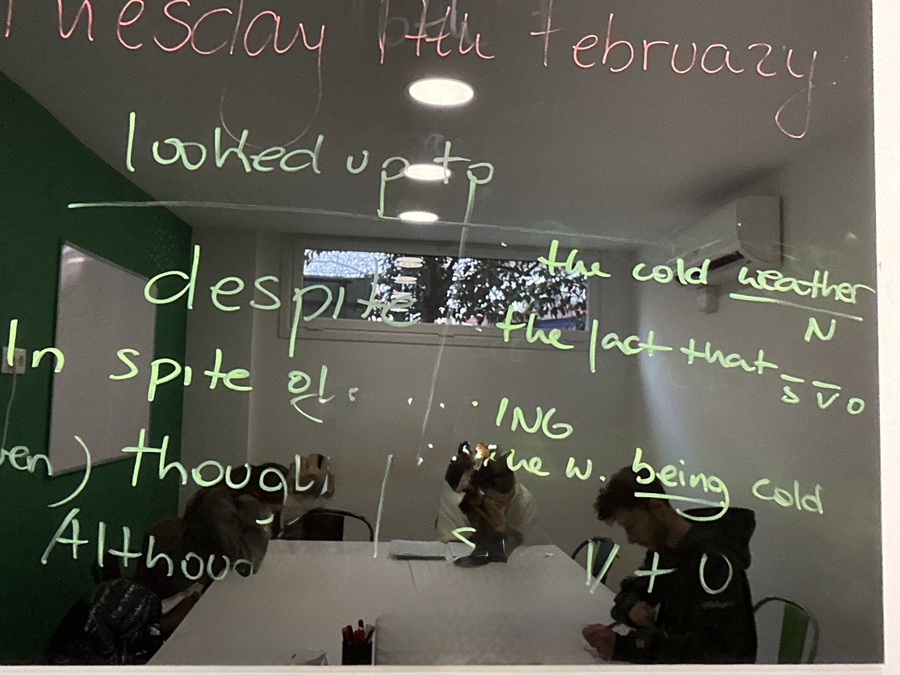 Tuesday 1th February
looked up to
despite
the cold weather
N
the fact that
S V O
In spite of
ING
w. being cold
though
Althoug
S V + O